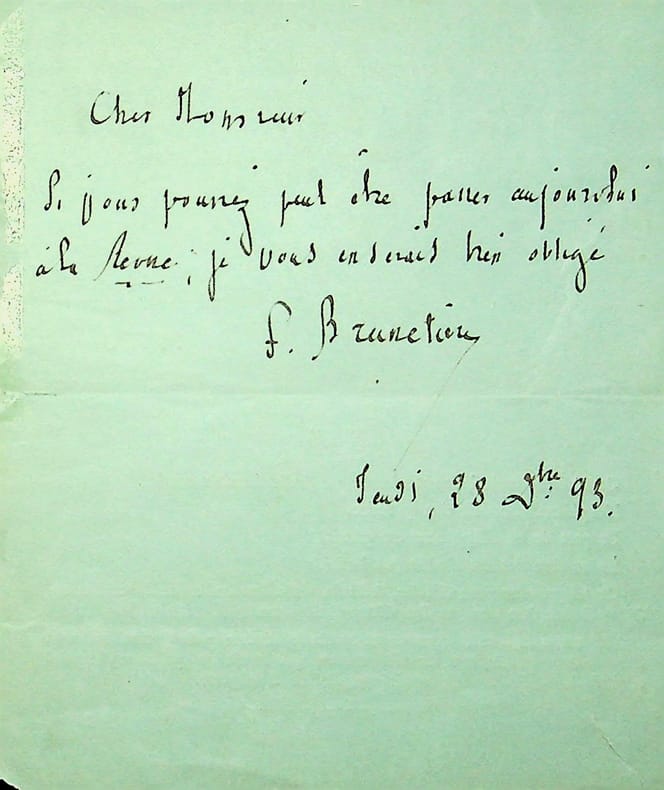 Cher Monsieur
Si vous pouviez peut être passer aujourd'hui
à la Revue, je vous en serais bien obligé
F. Brunetière
Jeudi, 28 Xbre 93.